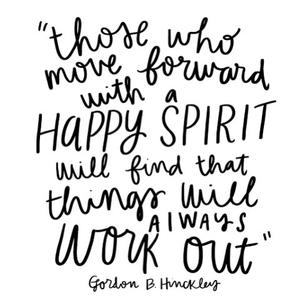 "those who
move forward
with a
HAPPY SPIRIT
will find that
things will
ALWAYS
WORK OUT"
Gordon B. Hinckley